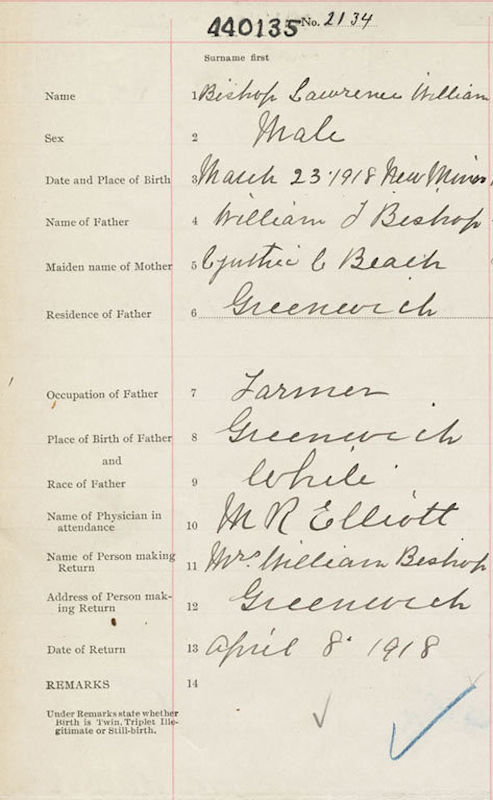 440135 No. 2134
Surname first
Name 1 Bishop Lawrence William
Sex 2 Male
Date and Place of Birth 3 March 23 1918 New Minas
Name of Father 4 William J Bishop
Maiden name of Mother 5 C Beach
Residence of Father 6 Greenwich
Occupation of Father 7 Farmer
Place of Birth of Father 8 Greenwich
and
Race of Father 9 White
Name of Physician in
attendance 10 M R Elliott
Name of Person making
Return 11 Mrs. William Bishop
Address of Person mak-
ing Return 12 Greenwich
Date of Return 13 April 8. 1918
REMARKS 14
Under Remarks state whether
Birth is Twin, Triplet Ille-
gitimate or Still-birth.